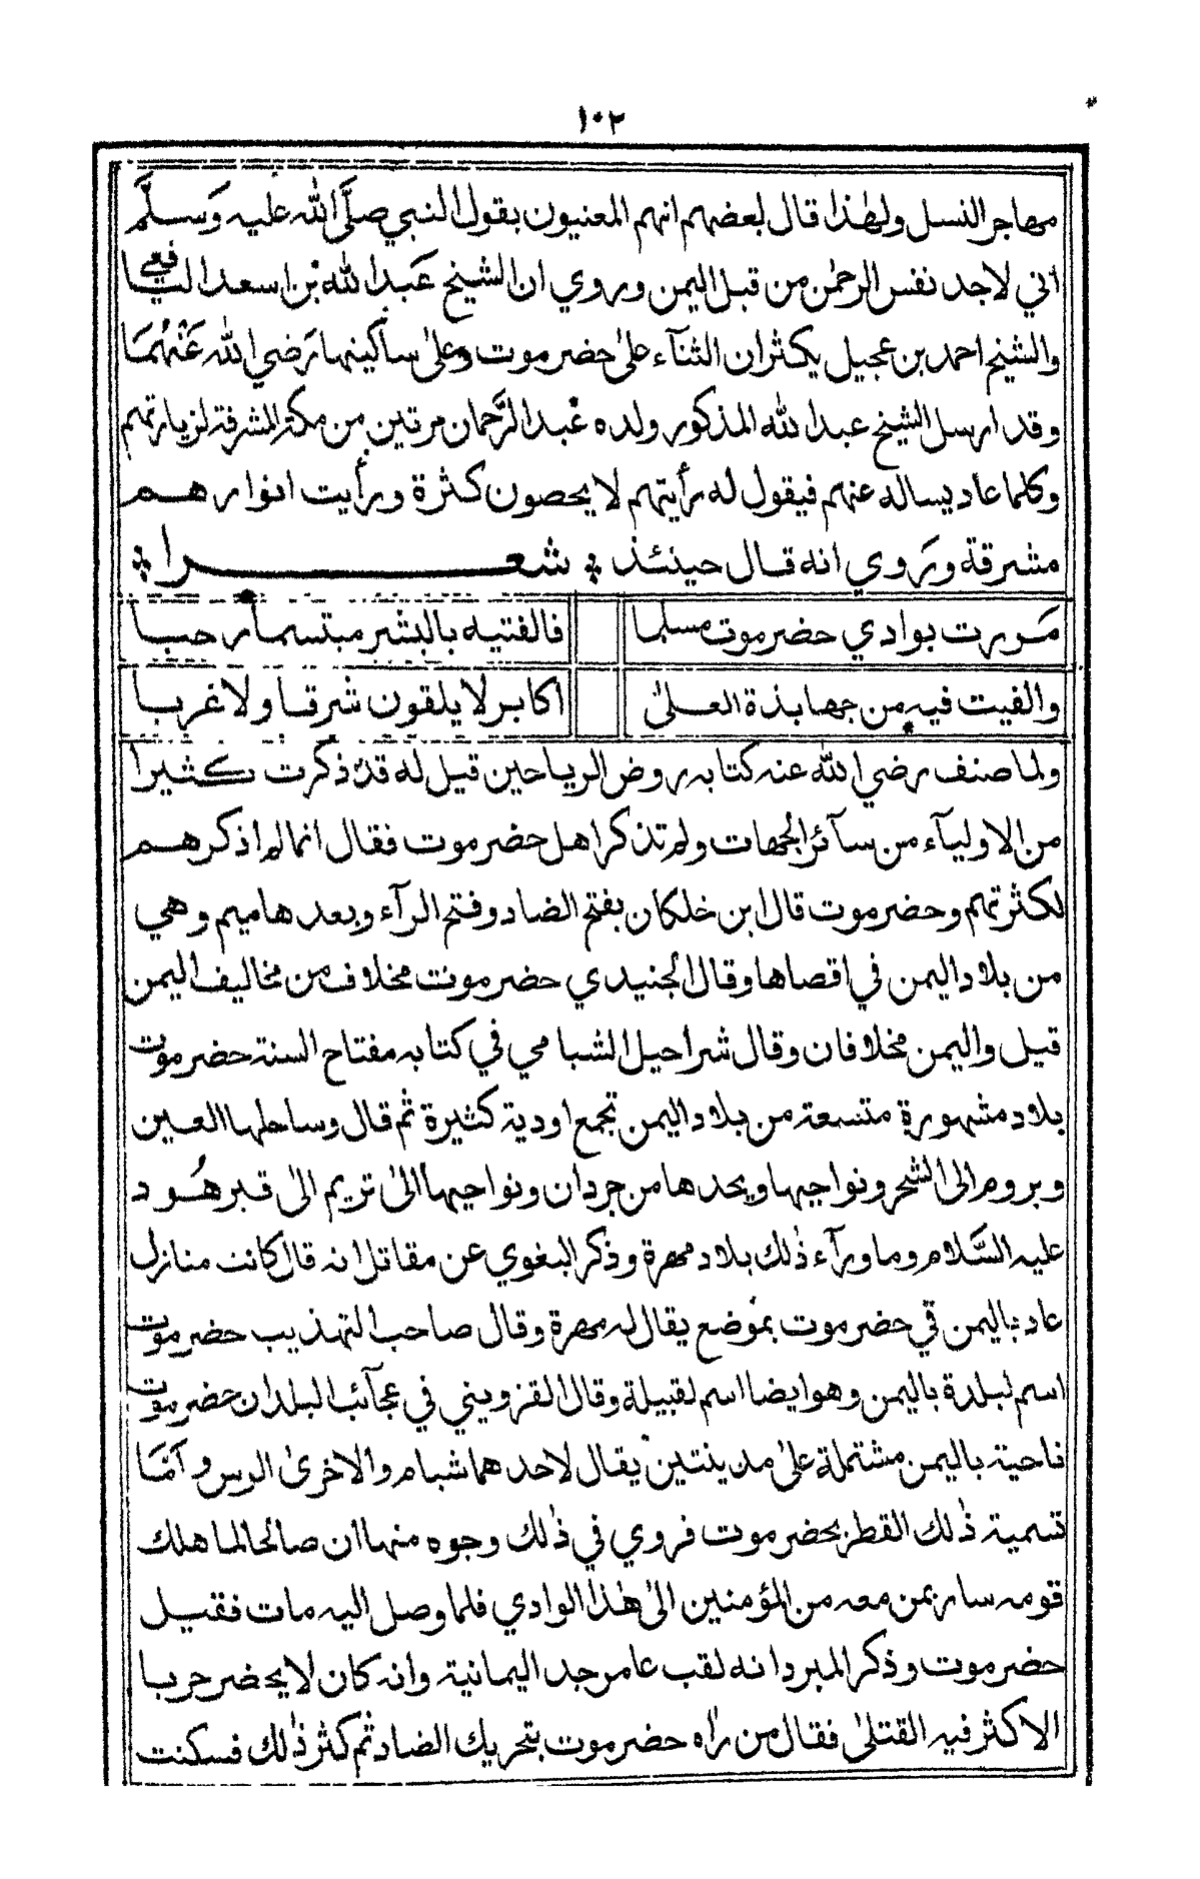 ١٠٢
مهاجر النسل ولهٰذا قال بعضهم انهم المعنيون بقول النبي صلَّى الله عليه وَسلَّم
أني لاجد نفس الرحمٰن من قبل اليمن وروي ان الشيخ عَبد الله بْن اسعد اليافعي
والشيخ احمد بن عجيل يكثران الثنآء علىٰ حضرموت وعلىٰ ساكنيها رَضي الله عَنْهُمَا
وقد ارسل الشيخ عبد الله المذكور ولده عْبد الرَّحمان مرتين من مكة المشرفة لزيارتهم
وكلما عاد يساله عنهم فيقول له رأيتهم لا يحصون كثرة ورأيت انوارهم
مشرقة وَروي انه قال حينئذ ❖ شعرا ❖
مَررت بوادي حضرموت مسلما فالفتيه بالبشر مبتسما رحبا
والفيت فيه من جهابذة العلىٰ اكابر لا يلقون شرقا ولا غربا
ولما صنف رضي الله عنه كتابه روض الرياحين قيل له قد ذكرت كثيرا
من الاوليآء من سآئر الجهات ولم تذكر اهل حضرموت فقال انما لم اذكرهم
لكثرتهم وحضرموت قال ابن خلكان بفتح الضاد وفتح الرآء وبعدها ميم وهي
من بلاد اليمن في اقصاها وقال الجنيدي حضرموت مخلاف من مخاليف اليمن
قيل واليمن مخلافان وقال شراحيل الشبامي في كتابه مفتاح السنة حضرموت
بلاد مشهورة متسعة من بلاد اليمن تجمع اودية كثيرة ثم قال وساحلها العين
وبروم الى الشحر ونواحيها ويحدها من جردان ونواحيها الىٰ تريم الىٰ قبر هُود
عليه السَّلام وما ورآء ذٰلك بلاد مهرة وذكر البغوي عن مقاتل انه قال كانت منازل
عاد باليمن في حضرموت بموضع يقال له مهرة وقال صاحب التهذيب حضرموت
اسم لبلدة باليمن وهو ايضا اسم لقبيلة وقال القزويني في عجآئب البلدان حضرموت
ناحية باليمن مشتملة علىٰ مدينتين يقال لاحدهما شبام والاخرىٰ الرس وأمَّا
تسمية ذٰلك القطر بحضرموت فروي في ذٰلك وجوه منها ان صالحا لما هلك
قومه سار بمن معه من المؤمنين الىٰ هٰذا الوادي فلما وصل اليه مات فقيل
حضرموت وذكر المبرد انه لقب عامر جد اليمانية وانه كان لا يحضر حربا
الا كثر فيه القتلىٰ فقال من رآه حضرموت بتحريك الضاد ثم كثر ذٰلك فسكنت